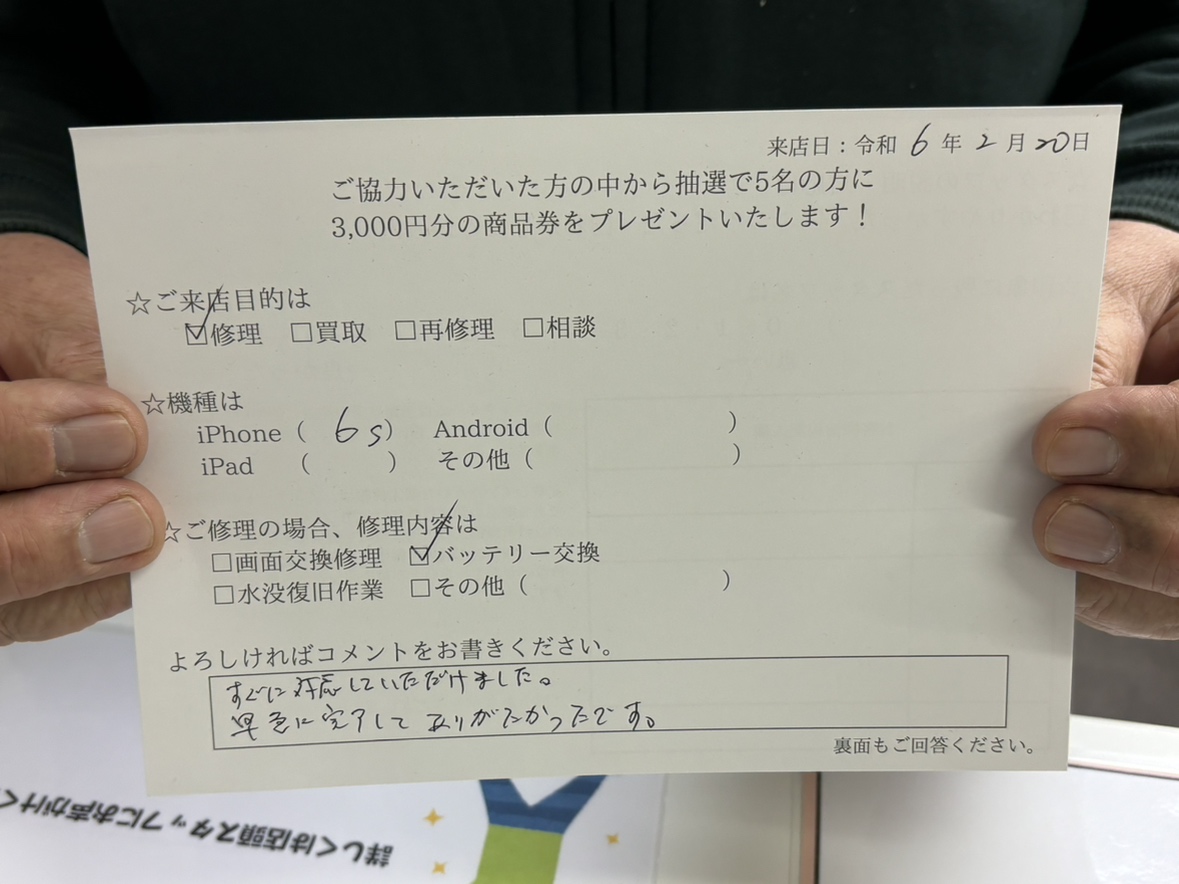 来店日：令和 6 年 2 月 20日
ご協力いただいた方の中から抽選で5名の方に
3,000円分の商品券をプレゼントいたします！
☆ご来店目的は
☑修理 □買取 □再修理 □相談
☆機種は
iPhone（ 6s） Android（ ）
iPad （ ） その他（ ）
☆ご修理の場合、修理内容は
□画面交換修理 ☑バッテリー交換
□水没復旧作業 □その他（ ）
よろしければコメントをお書きください。
すぐに対応していただけました。
早急に完了して ありがたかったです。
裏面もご回答ください。
詳しくは店頭スタッフにお声がけく